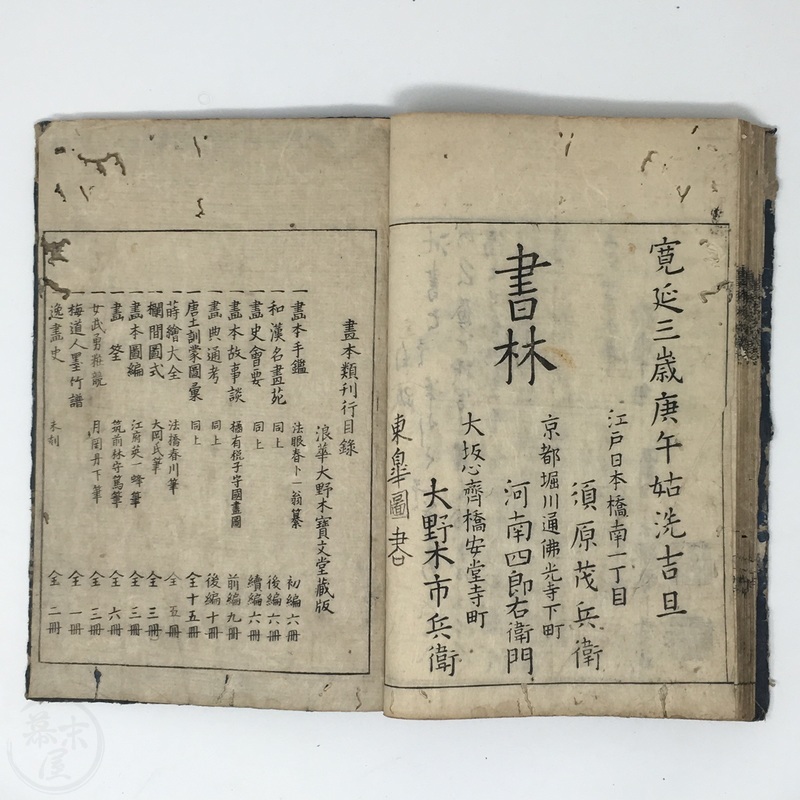 寛延三歳庚午姑洗吉旦
江戸日本橋南一丁目
須原茂兵衛
京都堀川通佛光寺下町
書林
河南四郎右衛門
大坂心齊橋安堂寺町
大野木市兵衛
東皐圖書
畫本類刊行目錄
浪華大野木寶文堂藏版
一畫本手鑑 法眼春卜一翁纂 初編六冊
一和漢名畫苑 同上 後編六冊
一畫史會要 同上 續編六冊
一畫本故事談 橘有税子字國畫圖 前編九冊
一畫典通考 同上 後編十冊
一唐土訓蒙圖彙 同上 全十五冊
一蒔繪大全 法橋春川筆 全五冊
一欄間圖式 大岡氏筆 全三冊
一畫本圖編 江府英一蜂筆 全三冊
一畫筌 筑前林守篤筆 全六冊
一女武勇粧競 月岡丹下筆 全三冊
一梅道人墨竹譜 全一冊
一逸畫史 未刻 全二冊
幕末屋